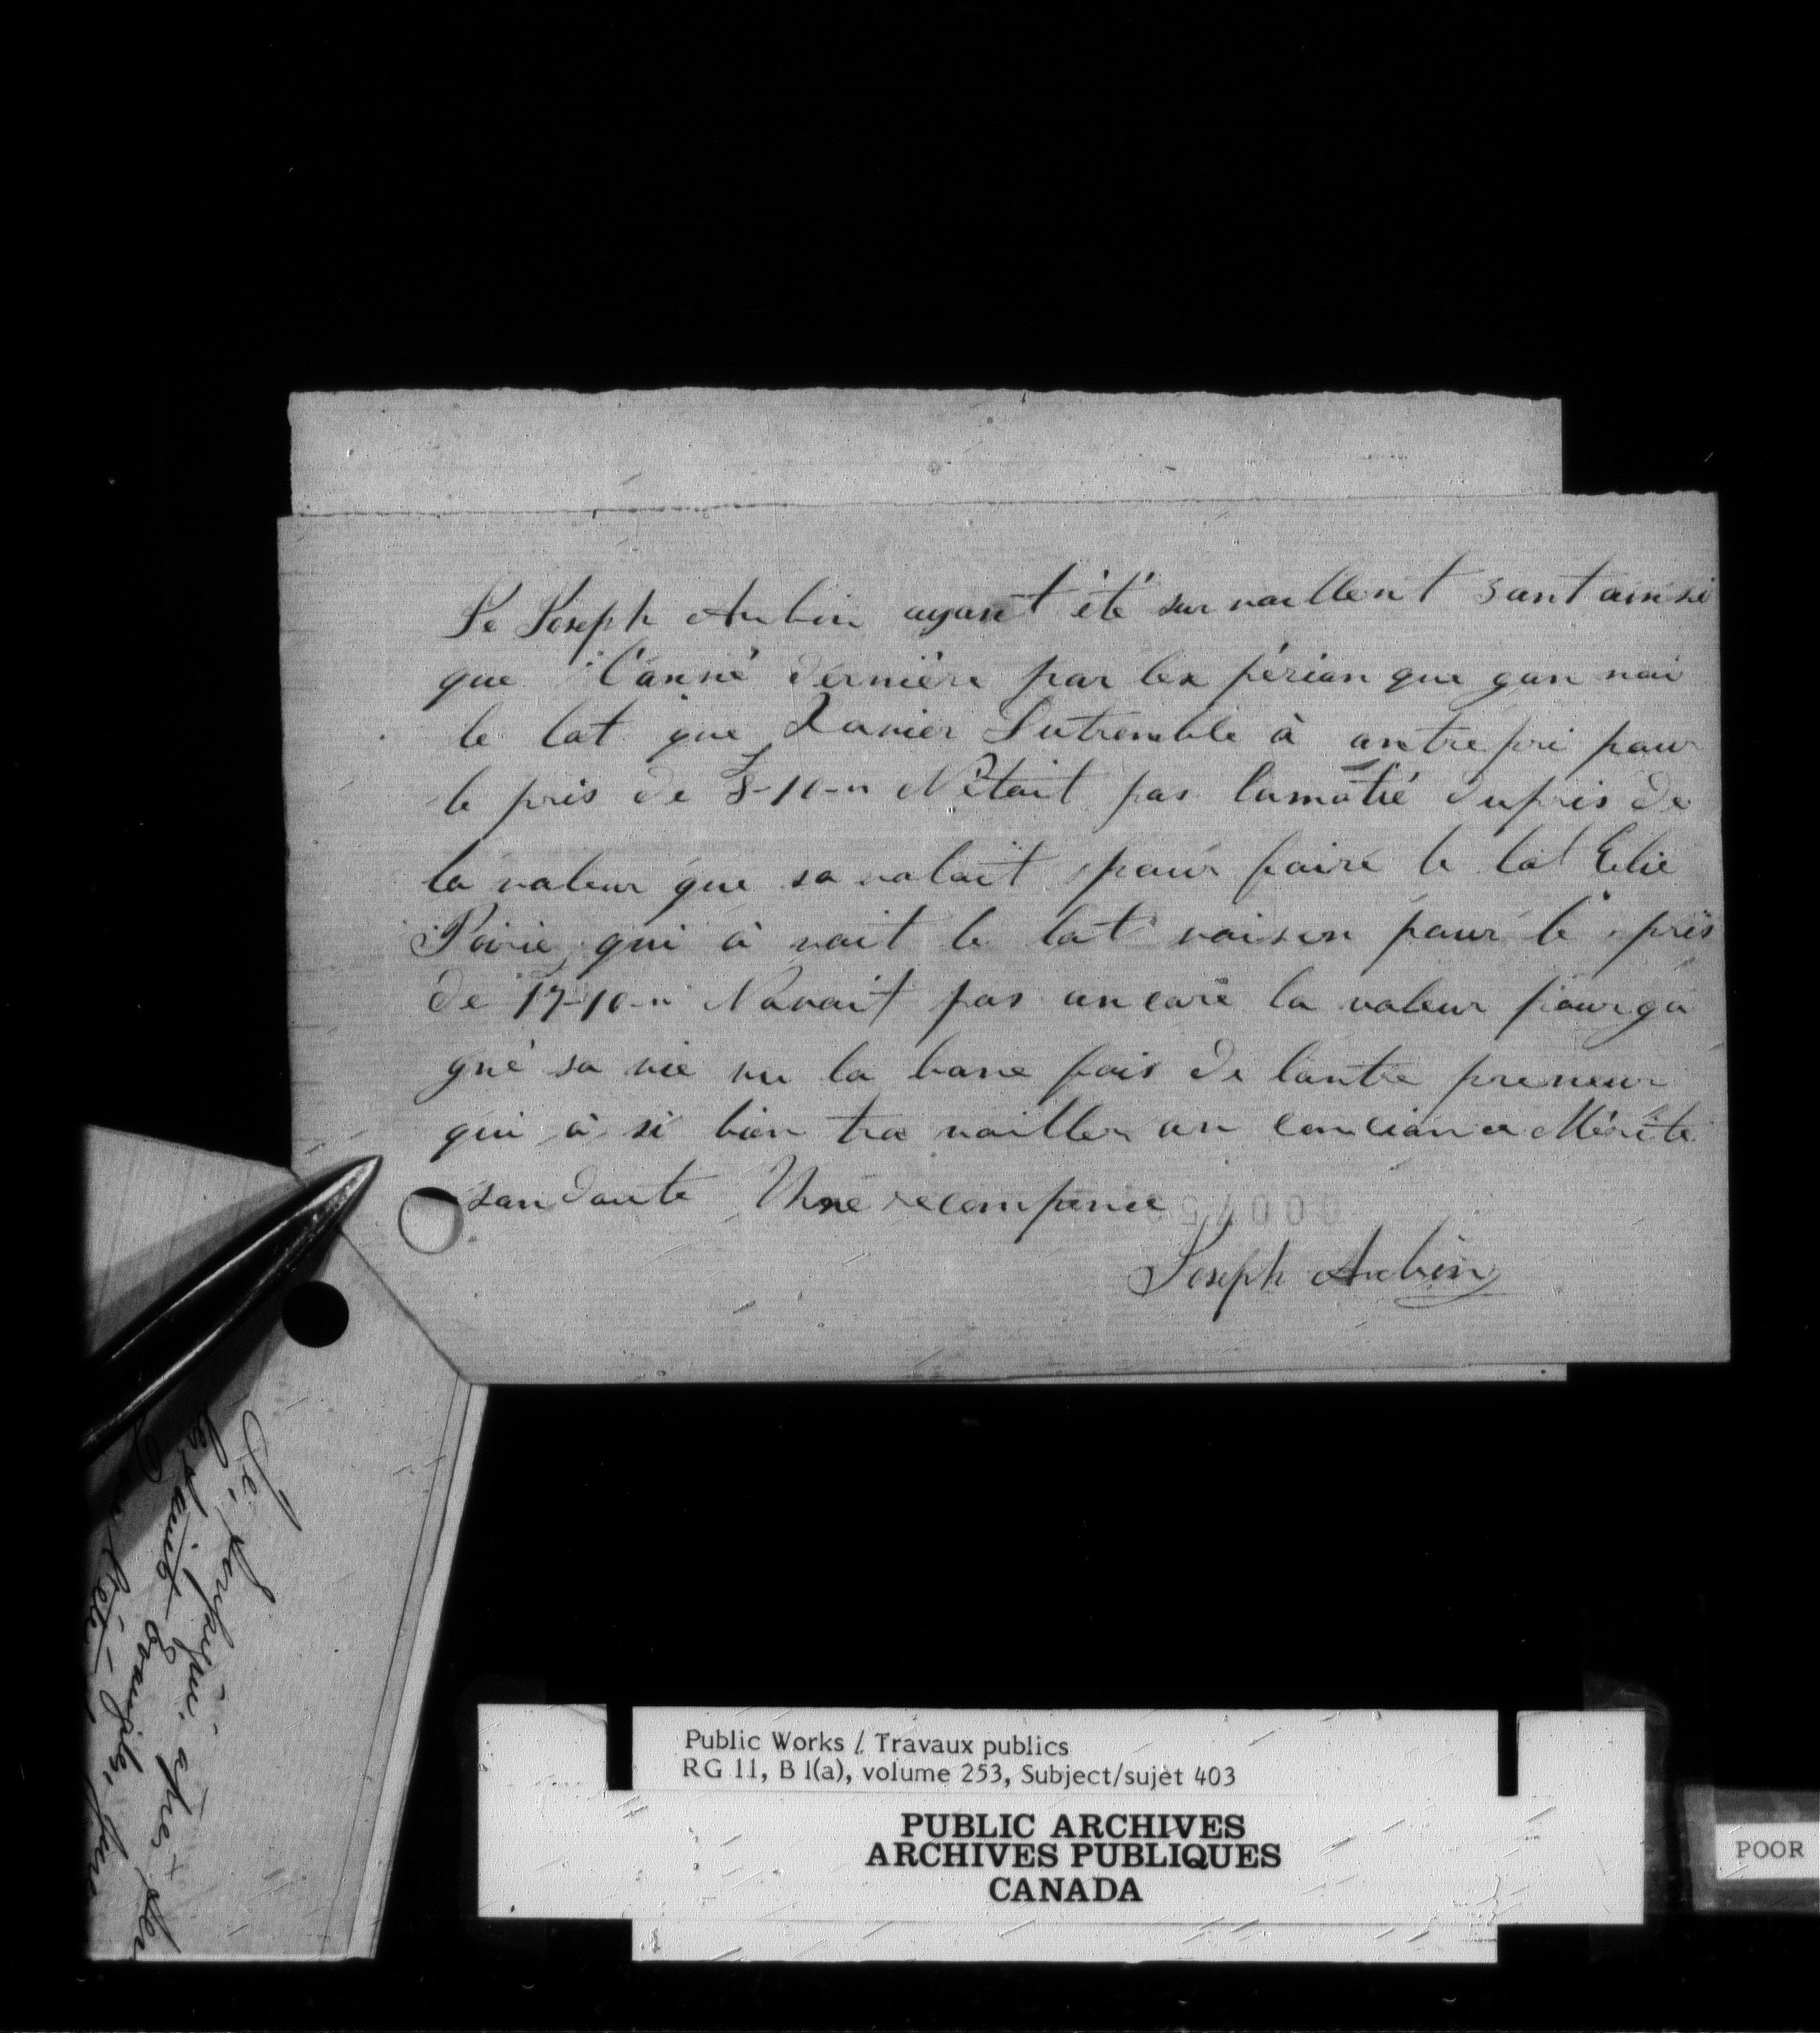 Je Joseph Aubin ayant été survaillent sant ainsi
que l'anné dernière par lex périan que gan nai
le lat que Xavier Lutremble à antrepri pour
le pris de 8-10-" N'était pas lamotié dupris de
la valeur que sa valait pour faire le lat Elie
Poirie qui à vait le lat voisen pour le pris
de 17-10-" Navait pas ancore la valeur pourga
gné sa vie vu la bone fois de lantre preneur
qui à si bien tra vailler an conciance Mérite
san doute Une recompence
Joseph Aubin
Public Works / Travaux publics
RG 11, B 1(a), volume 253, Subject/sujet 403
PUBLIC ARCHIVES
ARCHIVES PUBLIQUES
CANADA
POOR